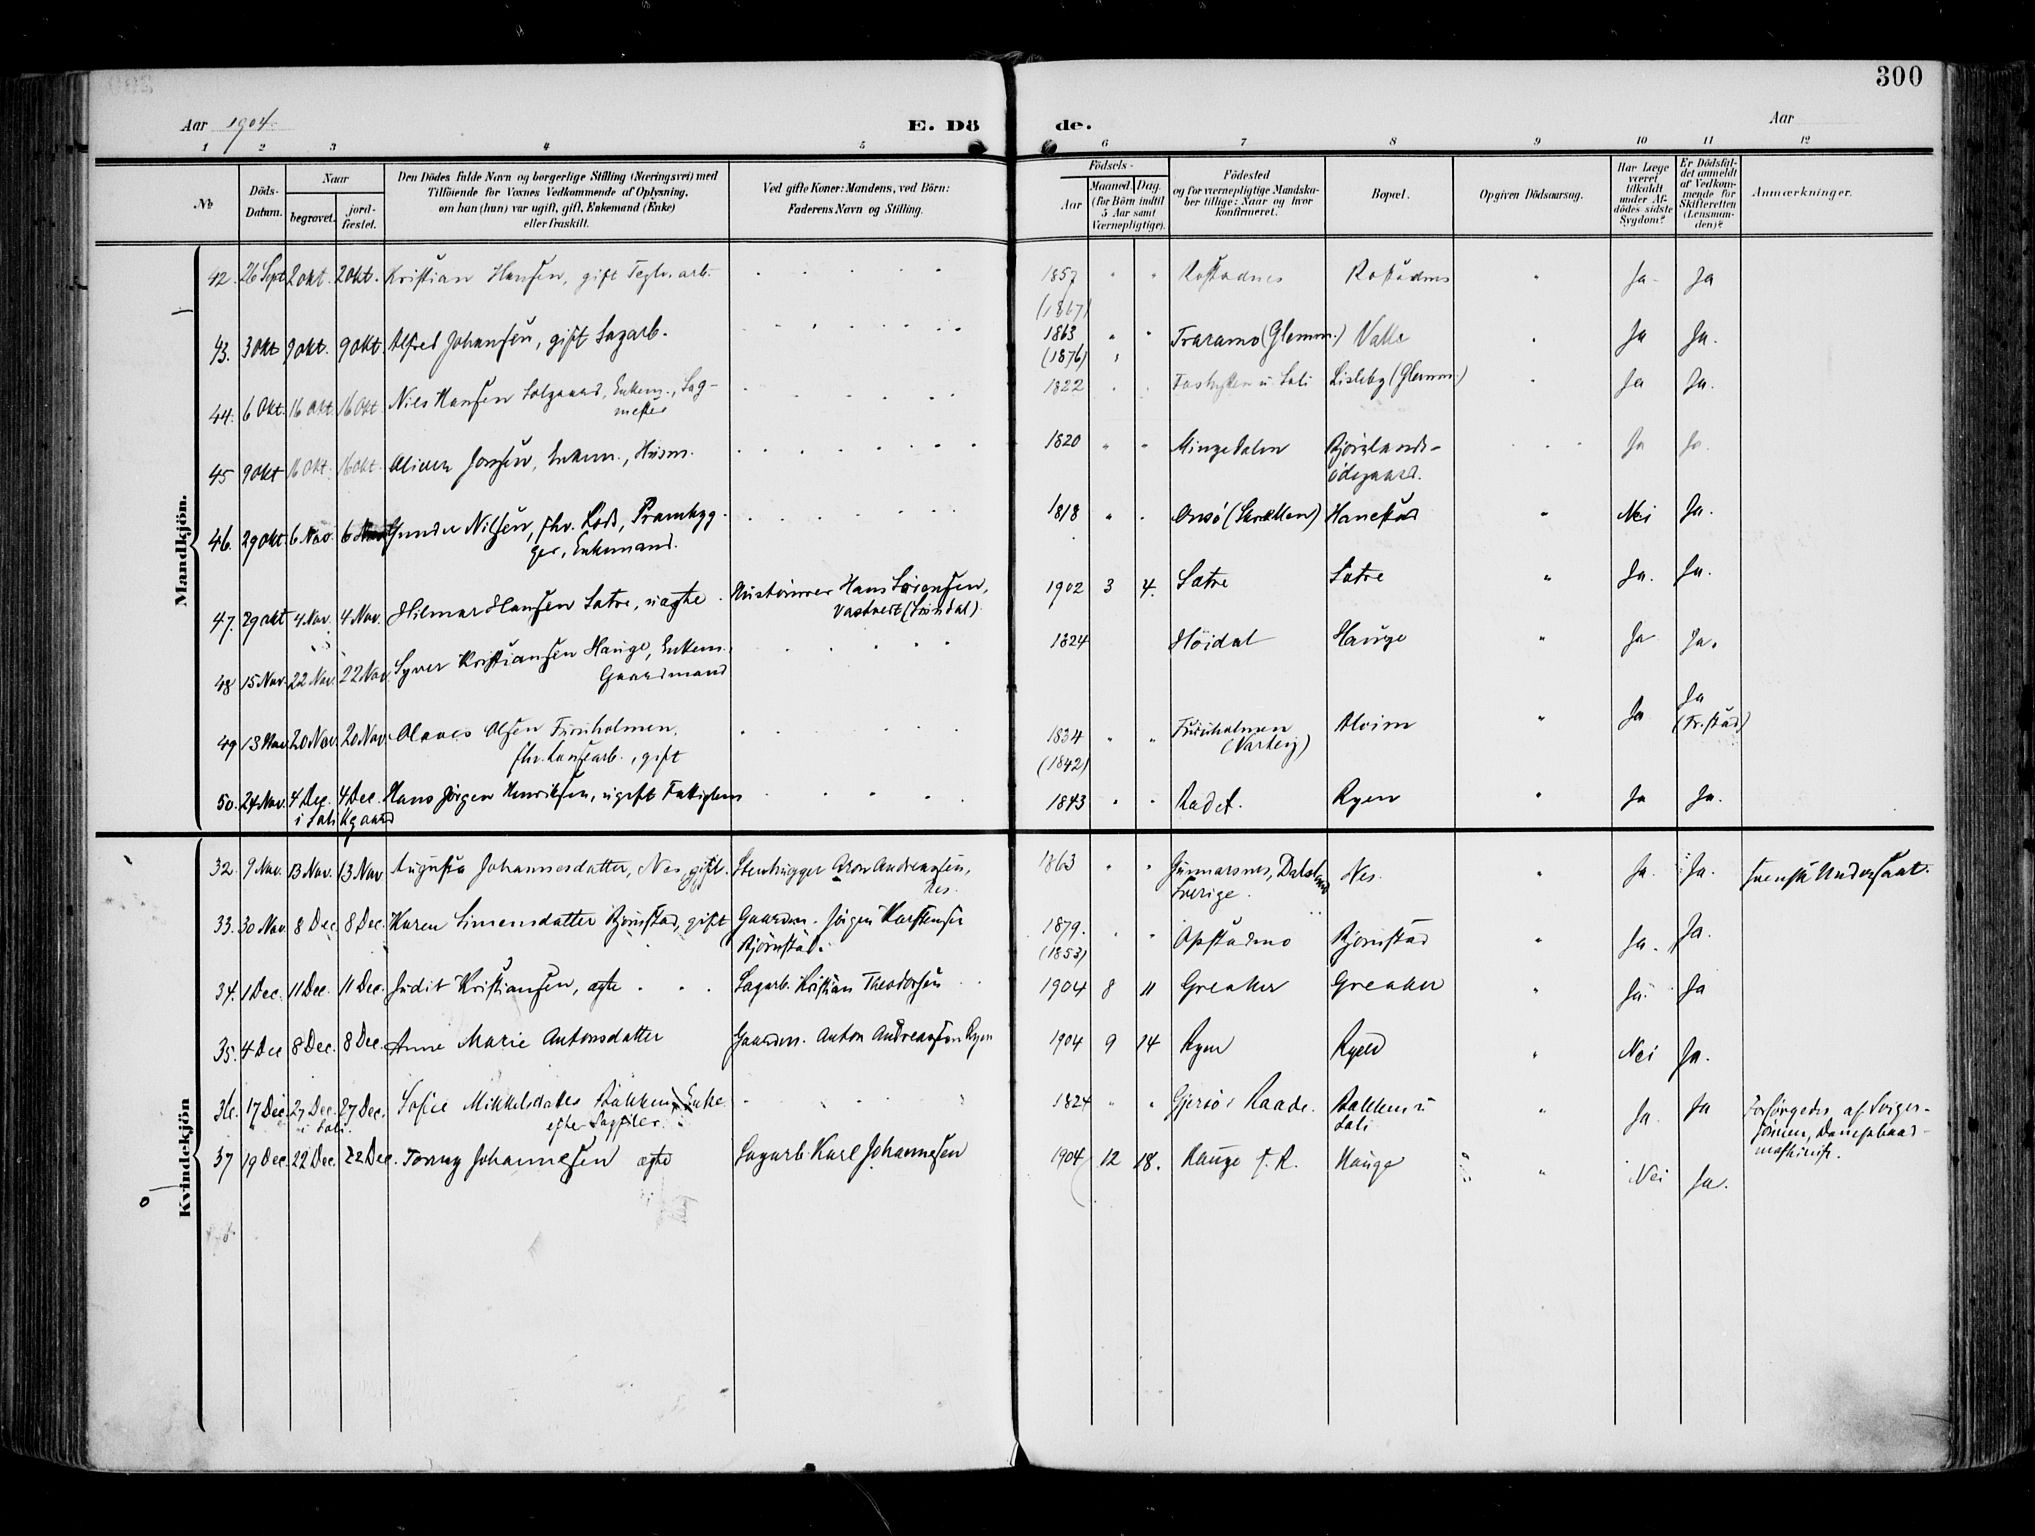 300
Aar 1904. E. Dö de. Aar
1 2 3 4 5 6 7 8 9 10 11 12
№
Döds-Datum.
Naar
begravet.
jord-fæstet.
Den Dödes fulde Navn og borgerlige Stilling (Næringsvei) med
Tilföiende for Voxnes Vedkommende af Oplysning,
om han (hun) var ugift, gift, Enkemand (Enke)
eller fraskilt.
Ved gifte Koner: Mandens, ved Börn:
Faderens Navn og Stilling.
Födsels-
Aar
Maaned. Dag.
(for Börn indtil
5 Aar samt
Værnepligtige).
Födested
og for værnepligtige Mandska-
ber tillige: Naar og hvor
konfirmeret.
Bopæl.
Opgiven Dödsaarsag.
Har Læge
været
tilkaldt
under Af-
dödes sidste
Sygdom?
Er Dödsfal-
det anmeldt
af Vedkom-
mende for
Skifteretten
(Lensman-
den)?
Anmærkninger.
Mandkjön.
42. 26 Sept 2 Okt. 2 Okt. Kristian Hansen, gift Teglv.arb. 1857 Rostadnes Rostadnes Ja Ja
(1867)
43. 3 Okt 9 Okt. 9 Okt. Alfred Johansen, gift Sagarb. 1863 Traramo (Glemm.) Valle Ja Ja.
(1876)
44. 6 Okt. 16 Okt. 16 Okt. Nils Hansen Solgaard, Enkem., Sag- 1822 u. Soli Lisleby (Glemm.) Ja Ja.
mester
45 9 Okt 16 Okt. 16 Okt. Oliver Jonsen, Enkem., Husm. 1820 Mingedalen Bjørnlands- Ja Ja.
ødegaard.
46. 29 Okt. 6 Nov. 6 Nov. Gunder Nilsen, fhv. Lods, Prambyg- 1818 Onsø Hanestad Nei Ja.
ger, Enkemand.
47. 29 Okt 4 Nov. 4 Nov. Hilmar Hansen Sætre, uægte Hans Sørensen, 1902 3 4. Sætre Sætre Ja. Ja.
48 15 Nov. 22 Nov. 22 Nov. Syver Kristiansen Hauge, Enkem. 1824 Høidal Hauge Ja Ja.
Gaardmand
49 13 Nov. 20 Nov 20 Nov. Olaves Olsen Furuholmen, 1834 Furuholmen Alvim Ja Ja
(Varteig) (Fr.stad)
fhv. , gift (1842)
50. 24 Nov. 4 Dec. 4 Dec. Hans Jørgen Henriksen, ugift Fattiglem 1843 Radet. Ryen Ja Ja.
i Soli Kgaard
Kvindekjön
32. 9 Nov. 13 Nov. 13 Nov Augusta Johannesdatter, Nes, gift. Stenhugger Aron Andreassen, 1863 Gunnarsnes, Dalsland Nes. Ja. Ja. svensk Undersaat.
Nes. Sverige.
33. 30 Nov. 8 Dec 8 Dec. Karen Simensdatter Bjørnstad, gift Gaardm. Jørgen Karstensen 1879. Opstadmo Bjørnstad Ja. Ja.
Bjørnstad. (1853)
34. 1 Dec. 11 Dec. 11 Dec. Judit Kristiansen, ægte Sagarb. Kristian Theodorsen 1904 8 11 Greaker Greaker Ja. Ja
35. 4 Dec 8 Dec. 8 Dec. Anne Marie Antonsdatter Gaardm. Anton Andreassen Ryen 1904 9 14 Ryen Nei Ja.
36. 17 Dec. 27 Dec. 27 Dec. Sofie Mikkelsdatter Bakken, Enke 1824 Gjersø i Raade. Bakken u Ja. Ja Forsørgedes af Sviger-
i Soli. efter Soli sønnen, Dampbaad-
maskinist.
37 19 Dec. 22 Dec. 22 Dec. Johannesen ægte Sagarb. Karl Johannesen 1904 12 18. Hauge Hauge Nei Ja.